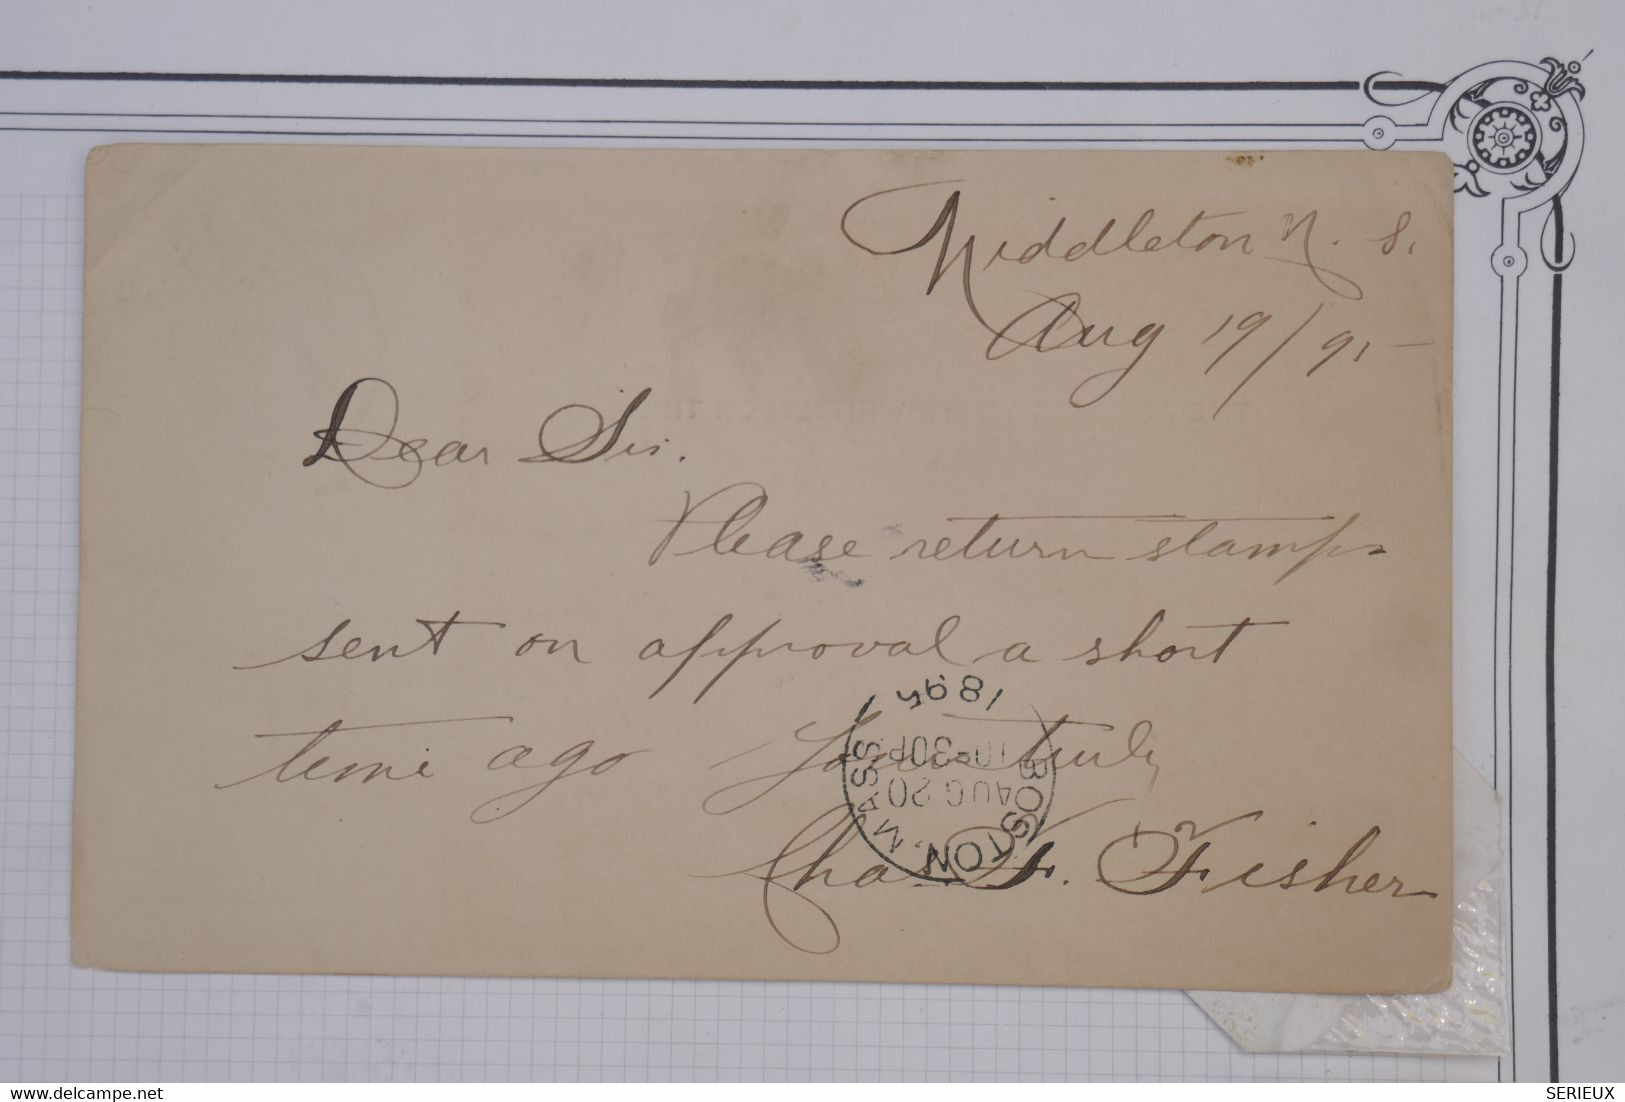 Middleton N. S.
Aug 19/95
Dear Sir.
Please return stamps
sent on approval a short
time ago Yours truly
Chas F. Fisher
BOSTON. MASS
AUG 20
10-30P
1895
www.delcampe.net
SERIEUX